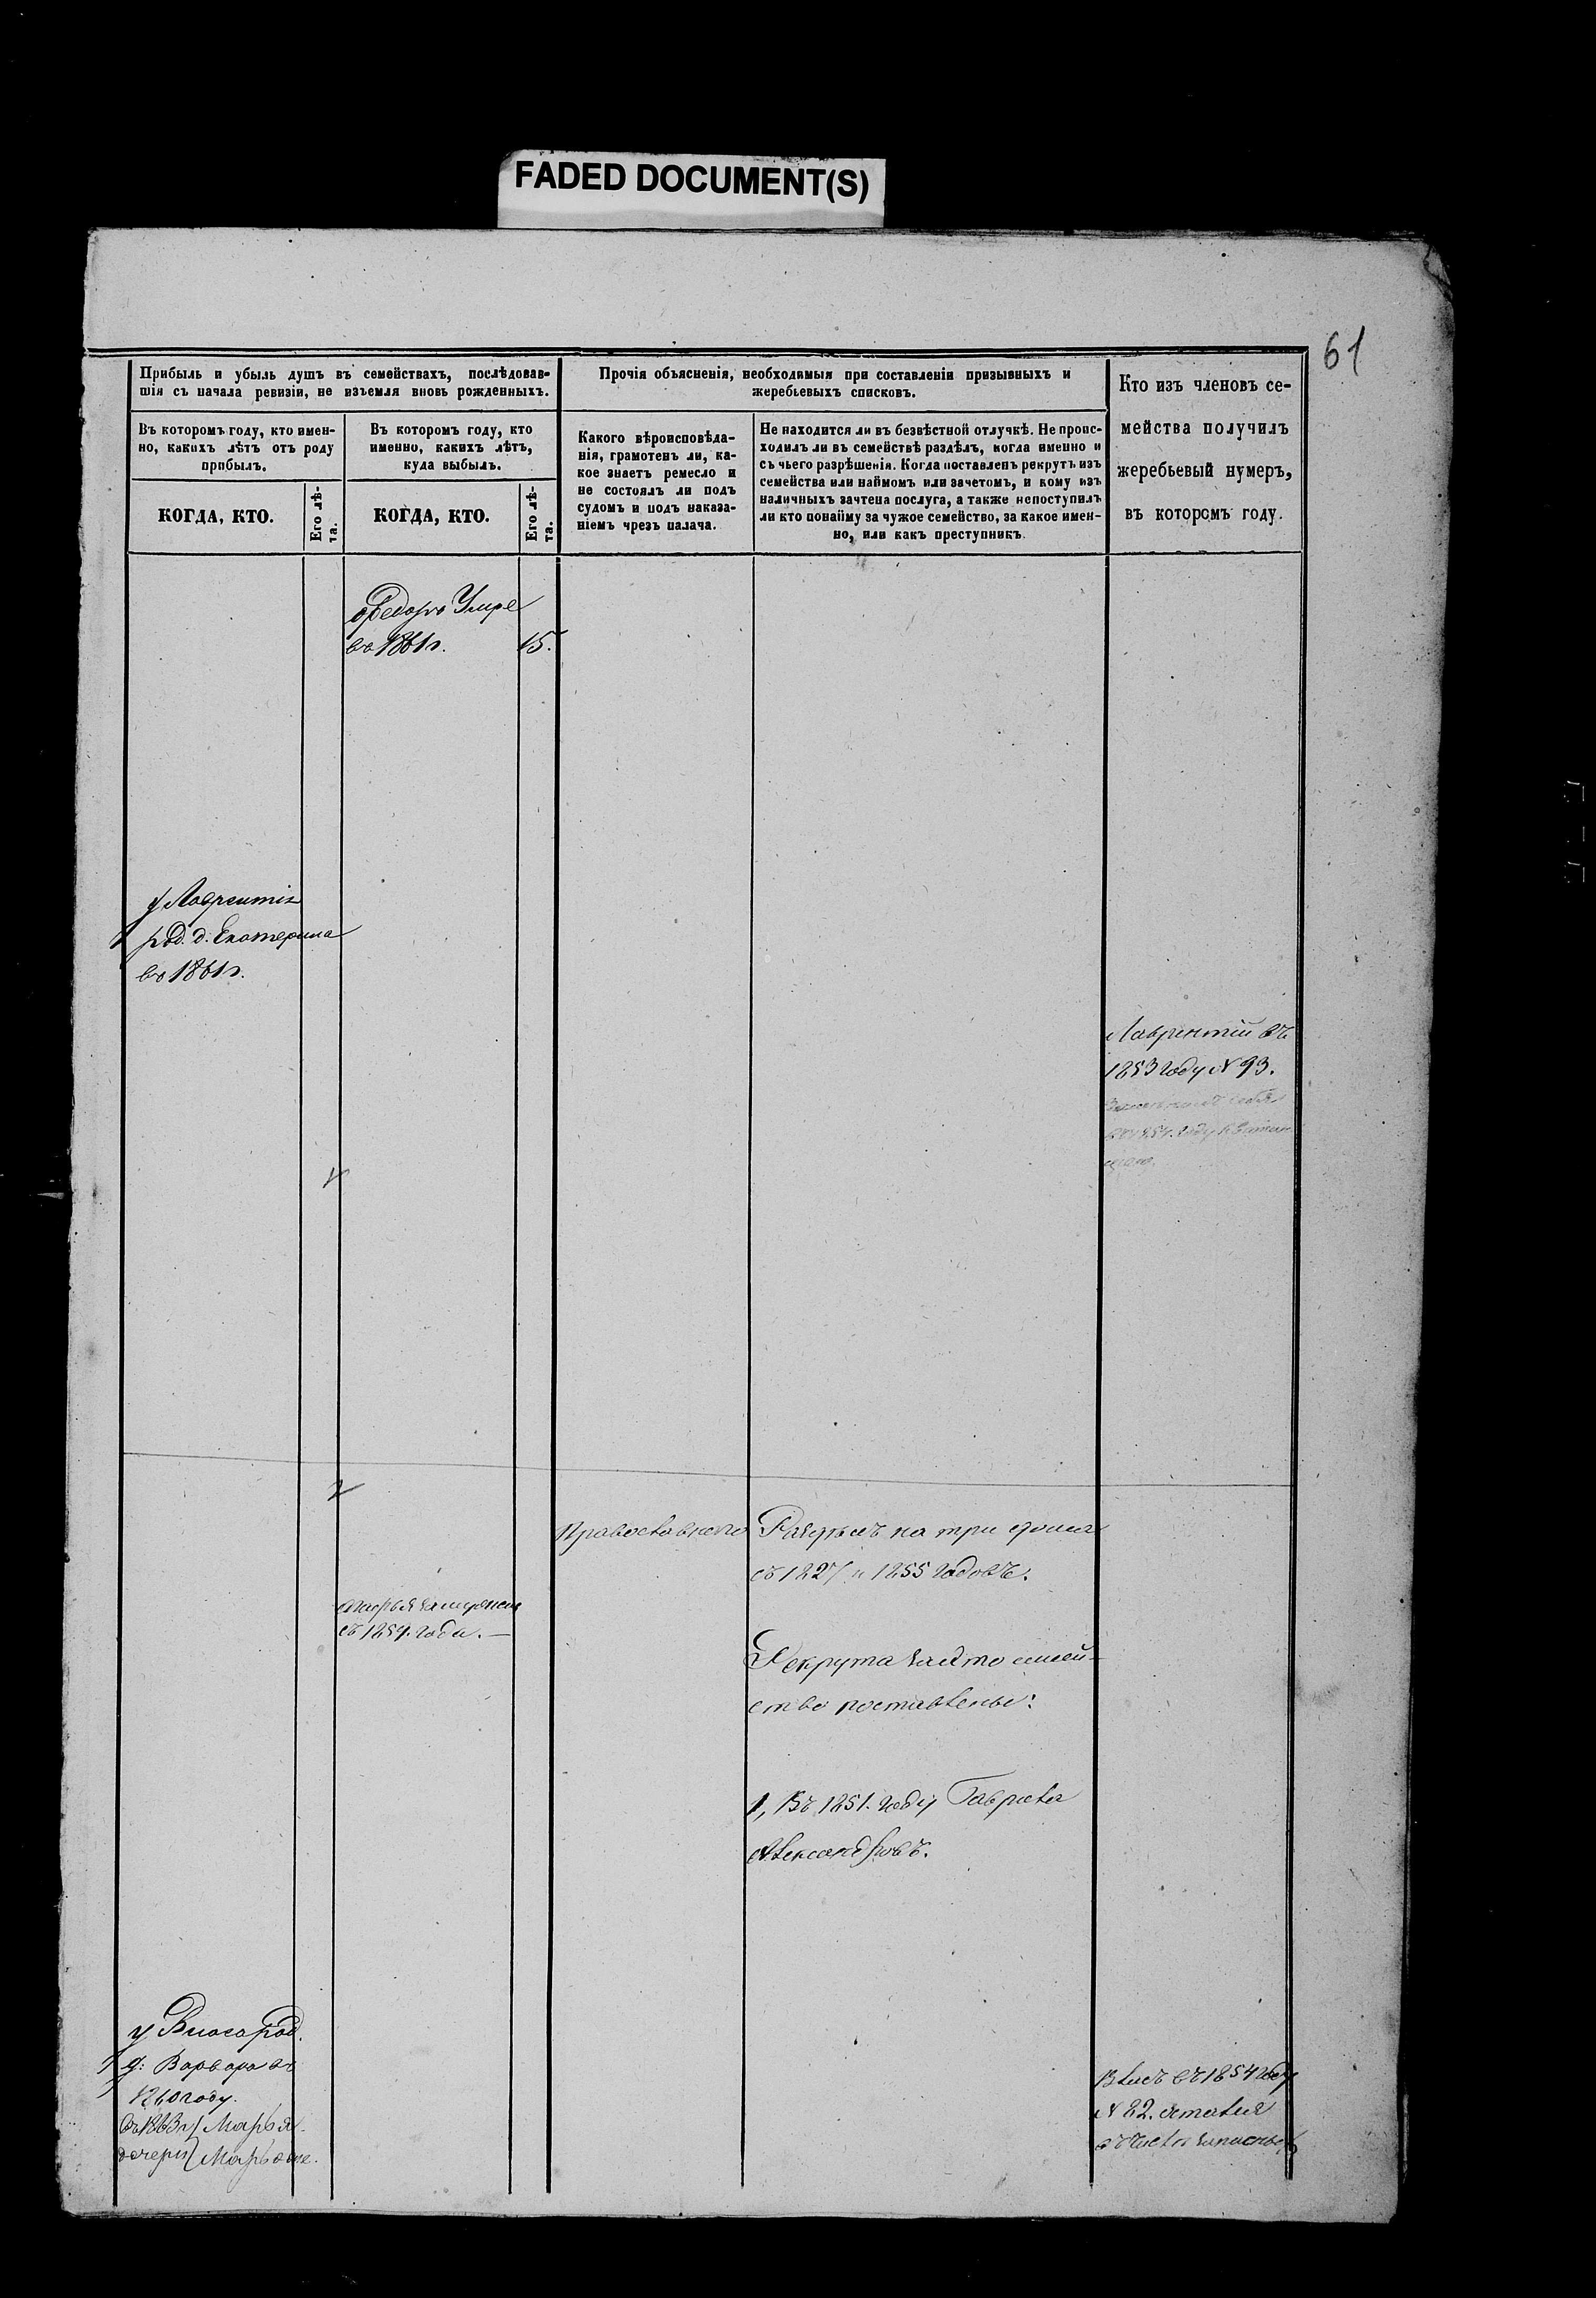 FADED DOCUMENT(S)
61
Прибыль и убыль душъ въ семействахъ, послѣдовав-
шія съ начала ревизіи, не изъемля вновь рожденныхъ.
Въ которомъ году, кто имен-
но, какихъ лѣтъ отъ роду
прибылъ.
КОГДА, КТО.
Его лѣ-
та.
Въ которомъ году, кто
именно, какихъ лѣтъ,
куда выбылъ.
КОГДА, КТО.
Его лѣ-
та.
Прочія объясненія, необходимыя при составленіи призывныхъ и
жеребьевыхъ списковъ.
Какого вѣроисповѣда-
нія, грамотенъ ли, ка-
кое знаетъ ремесло и
не состоялъ ли подъ
судомъ и подъ наказа-
ніемъ чрезъ палача.
Не находится ли въ безвѣстной отлучкѣ. Не проис-
ходилъ ли въ семействѣ раздѣлъ, когда именно и
съ чьего разрѣшенія. Когда поставленъ рекрутъ изъ
семейства или наймомъ или зачетомъ, и кому изъ
наличныхъ зачтена послуга, а также непоступилъ
ли кто понайму за чужое семейство, за какое имен-
но, или какъ преступникъ.
Кто изъ членовъ се-
мейства получилъ
жеребьевый нумеръ,
въ которомъ году.
Федоръ Умре
въ 1861г. 15.
у Лаврентія
род. д. Екатерина
въ 1861г.
Лаврентій въ
1853 году N 93.
году
Православнаго
на три
съ 1827 и 1855 годовъ.
съ 1859. года.
Рекрута
ство поставлены:
1, Въ 1851. году Гаврила
Александровъ.
у Власа род.
д: Варвара въ
1860 году.
въ 1863г Марья
дочери
Власъ въ 1854 году
N 82.